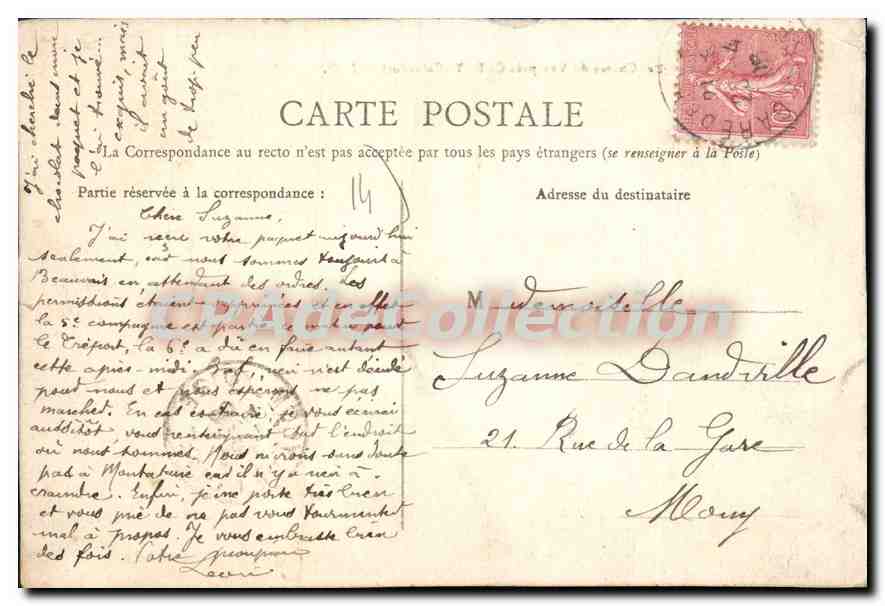 CARTE POSTALE
La Correspondance au recto n'est pas acceptée par tous les pays étrangers (se renseigner à la Poste)
Partie réservée à la correspondance :
Adresse du destinataire
14
Chère Suzanne,
J'ai reçu votre paquet aujourd'hui
seulement, car nous sommes toujours à
Beauvais en attendant des ordres. Les
permissions étaient supprimées et en effet
la 5e compagnie est partie ce matin pour
le Tréport, la 6e a dû en faire autant
cette après-midi. Bref, rien n'est décidé
pour nous et nous espérons ne pas
marcher. En cas contraire, je vous écrirai
aussitôt, vous renseignant sur l'endroit
où nous sommes. Nous n'irons sans doute
pas à Montataire car il n'y a rien à
craindre. Enfin, je me porte très bien
et vous prie de ne pas vous tourmenter
mal à propos. Je vous embrasse bien
des fois. Votre
J'ai cherché le
chocolat dans mon
paquet et je
l'ai trouvé...
exquis, mais
il avait
un goût
de trop peu
Mademoiselle
Suzanne Dandville
21. Rue de la Gare
Mouy
CPA de Collection
GARE D
10